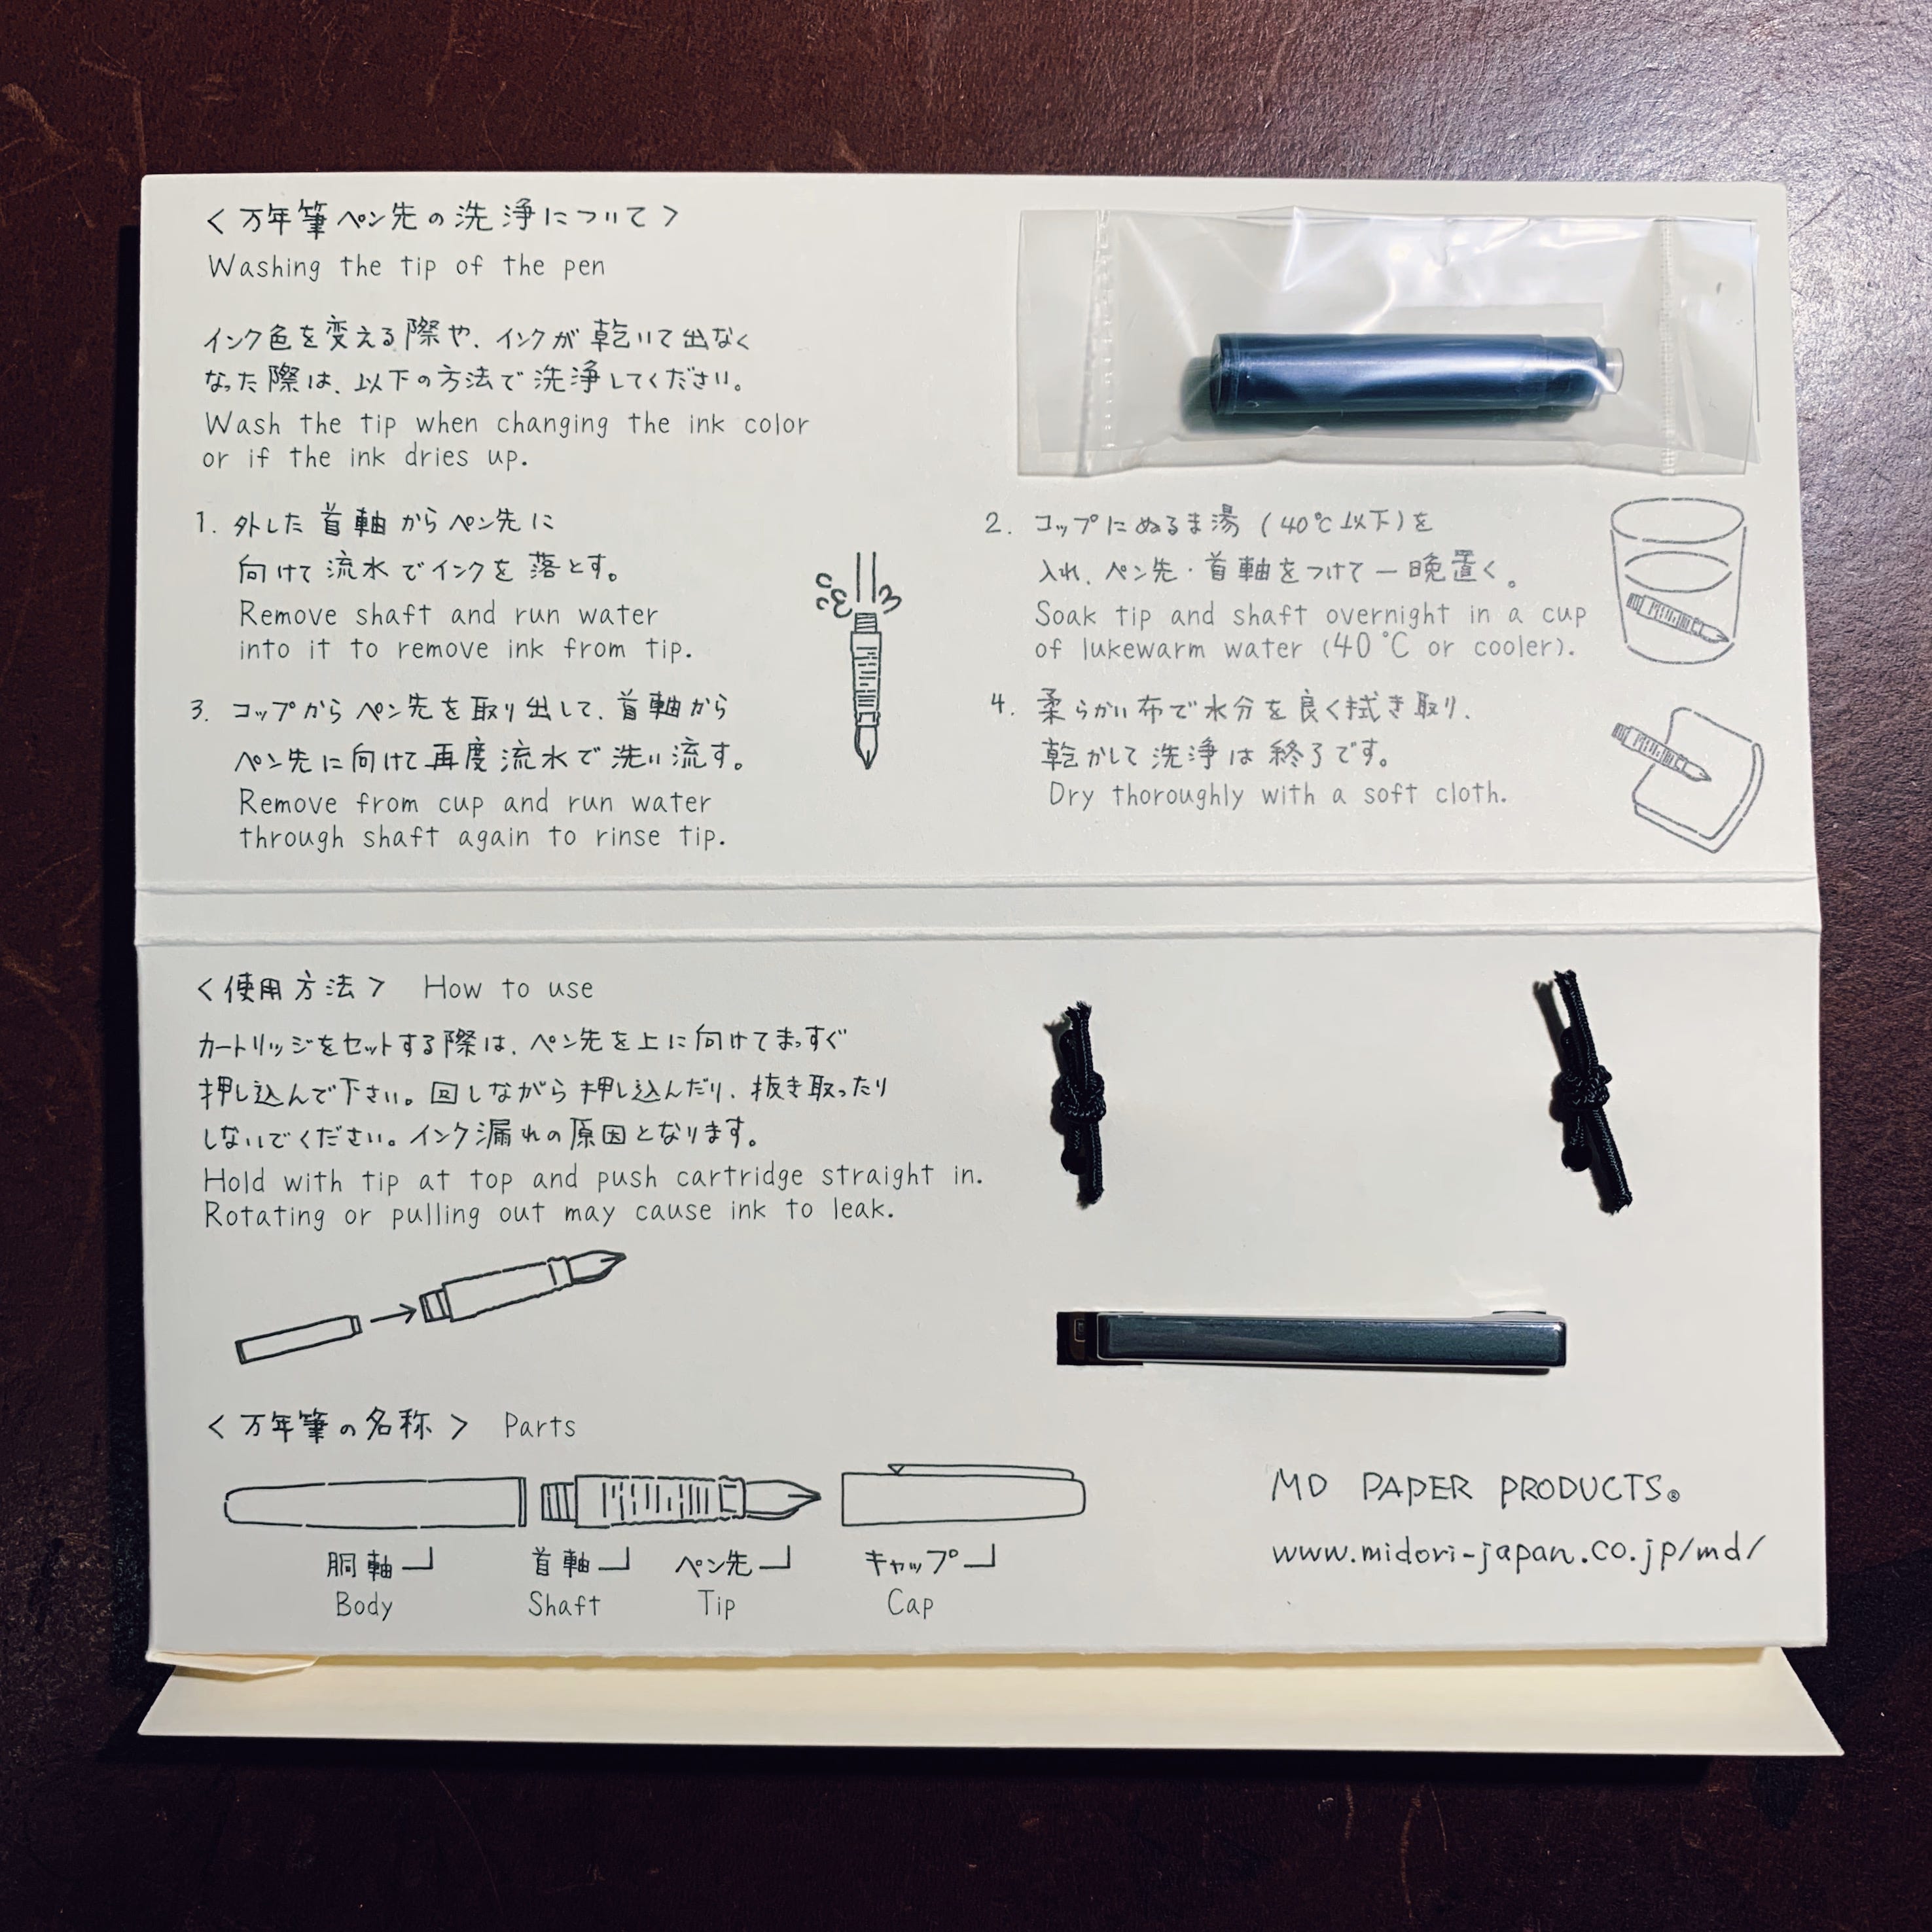 〈万年筆ペン先の洗浄について〉
Washing the tip of the pen
インク色を変える際や、インクが乾いて出なく
なった際は、以下の方法で洗浄してください。
Wash the tip when changing the ink color
or if the ink dries up.
1. 外した首軸からペン先に
向けて流水でインクを落とす。
Remove shaft and run water
into it to remove ink from tip.
2. コップにぬるま湯(40℃以下)を
入れ、ペン先・首軸をつけて一晩置く。
Soak tip and shaft overnight in a cup
of lukewarm water (40℃ or cooler).
3. コップからペン先を取り出して、首軸から
ペン先に向けて再度流水で洗い流す。
Remove from cup and run water
through shaft again to rinse tip.
4. 柔らかい布で水分を良く拭き取り、
乾かして洗浄は終了です。
Dry thoroughly with a soft cloth.
〈使用方法〉 How to use
カートリッジをセットする際は、ペン先を上に向けてまっすぐ
押し込んで下さい。回しながら押し込んだり、抜き取ったり
しないでください。インク漏れの原因となります。
Hold with tip at top and push cartridge straight in.
Rotating or pulling out may cause ink to leak.
〈万年筆の名称〉 Parts
胴軸 首軸 ペン先 キャップ
Body Shaft Tip Cap
MD PAPER PRODUCTS®
www.midori-japan.co.jp/md/